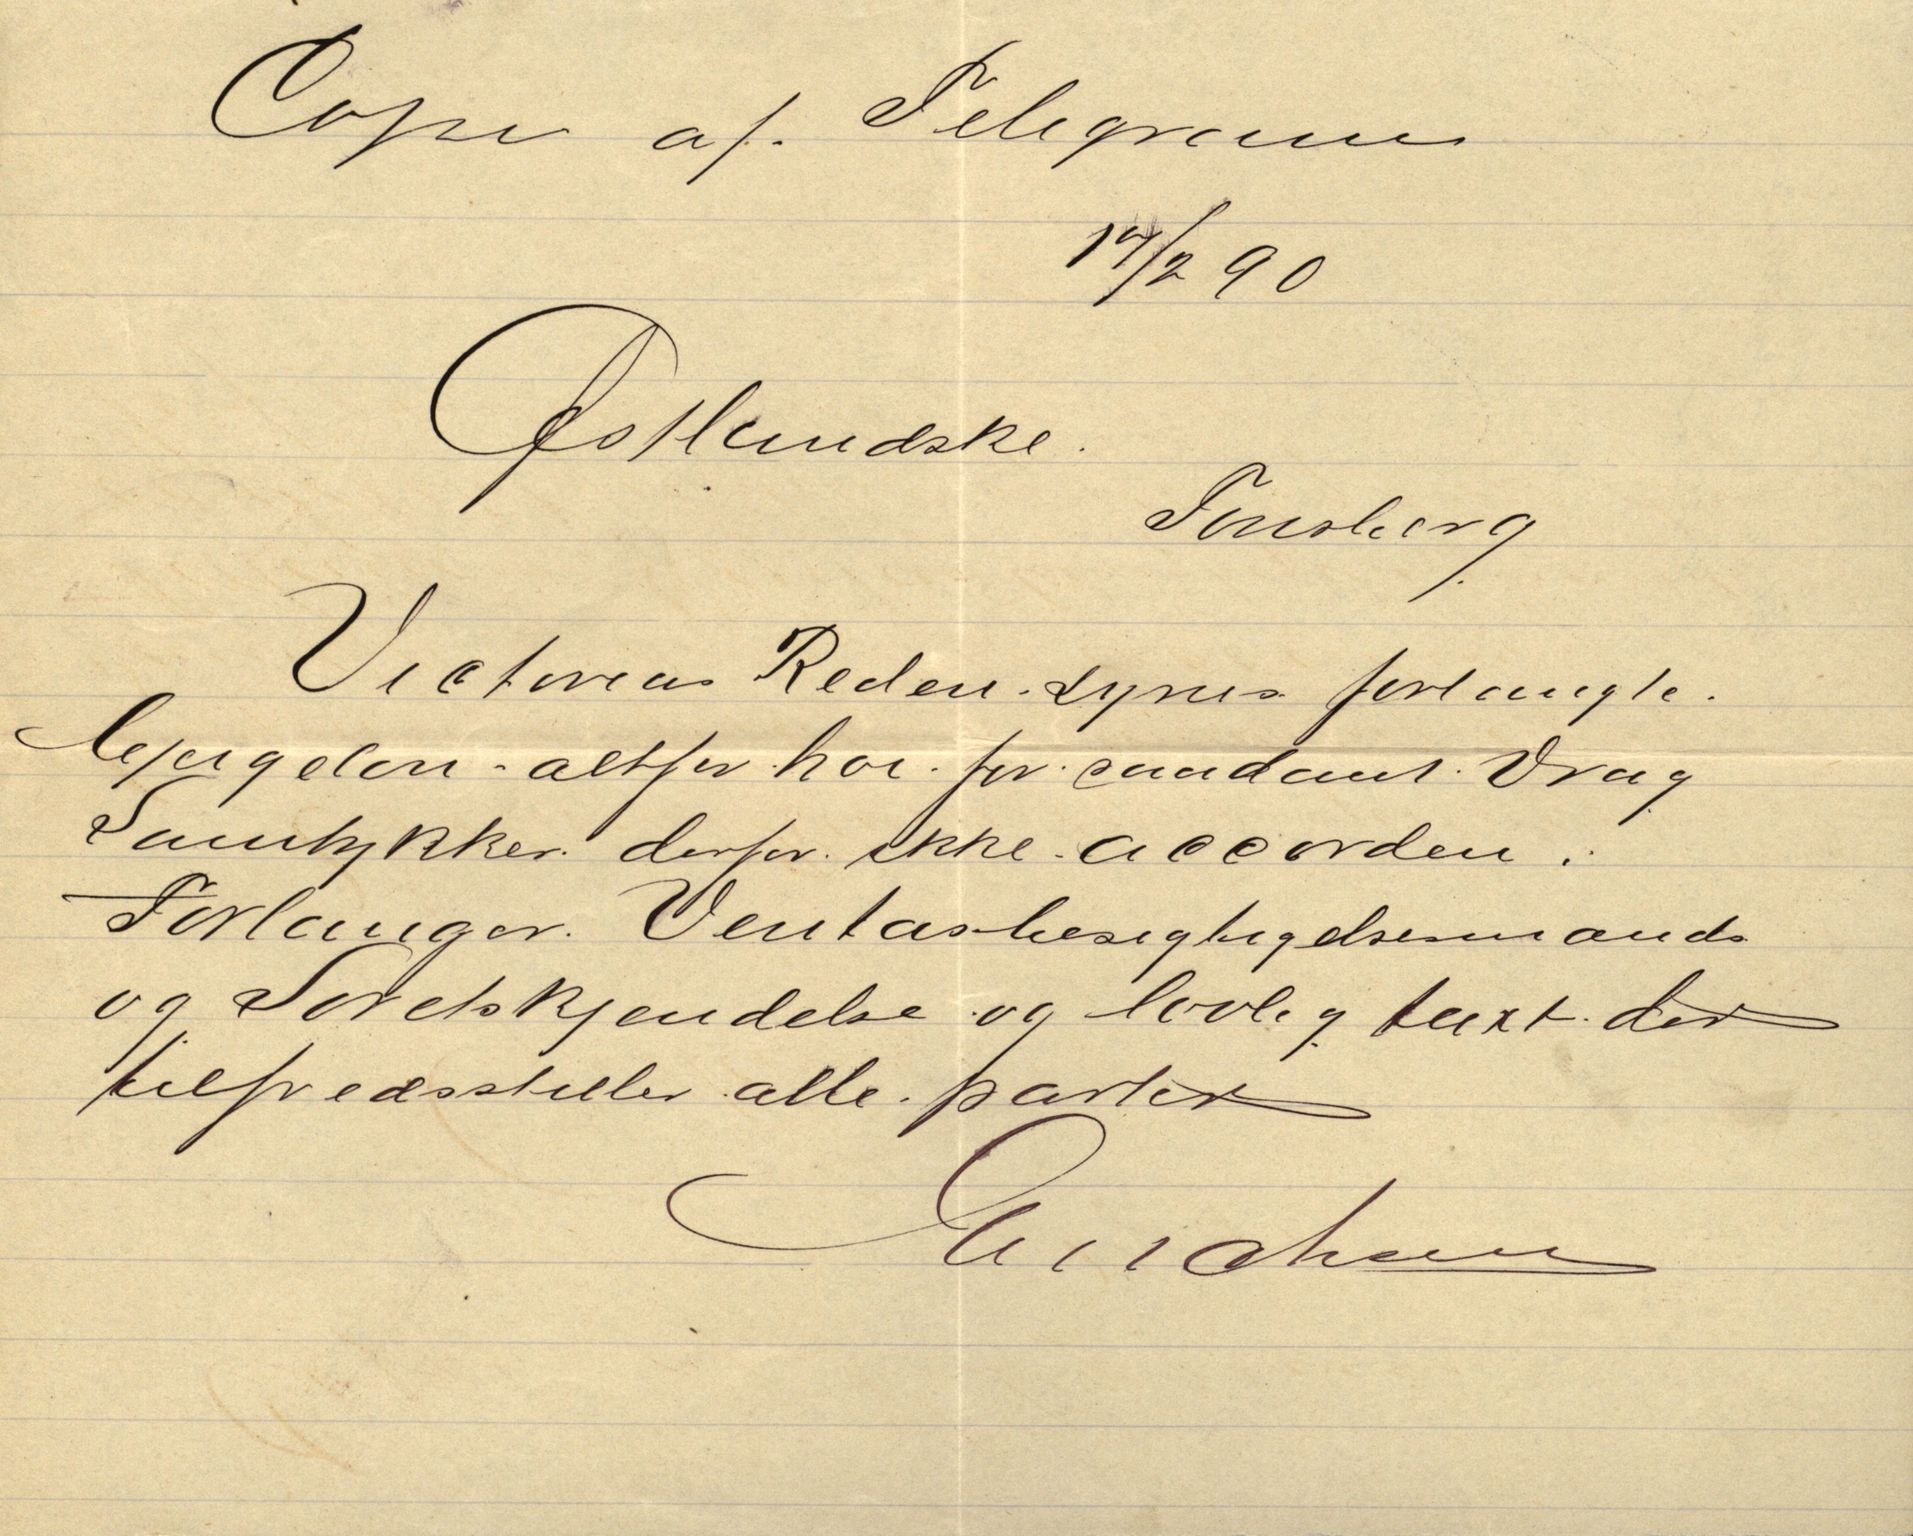 Copi af. Telegram
14/2 90
Østlandske.
Tønsberg
Victorias Rederi synes forlangte
bjergeløn altfor høi for saadant Vrag
Samtykker derfor ikke accorden.
Forlanger Ventasbesigtigelsesmænds
og Søretskjendelse og lovlig taxt der
tilfredsstiller alle parter